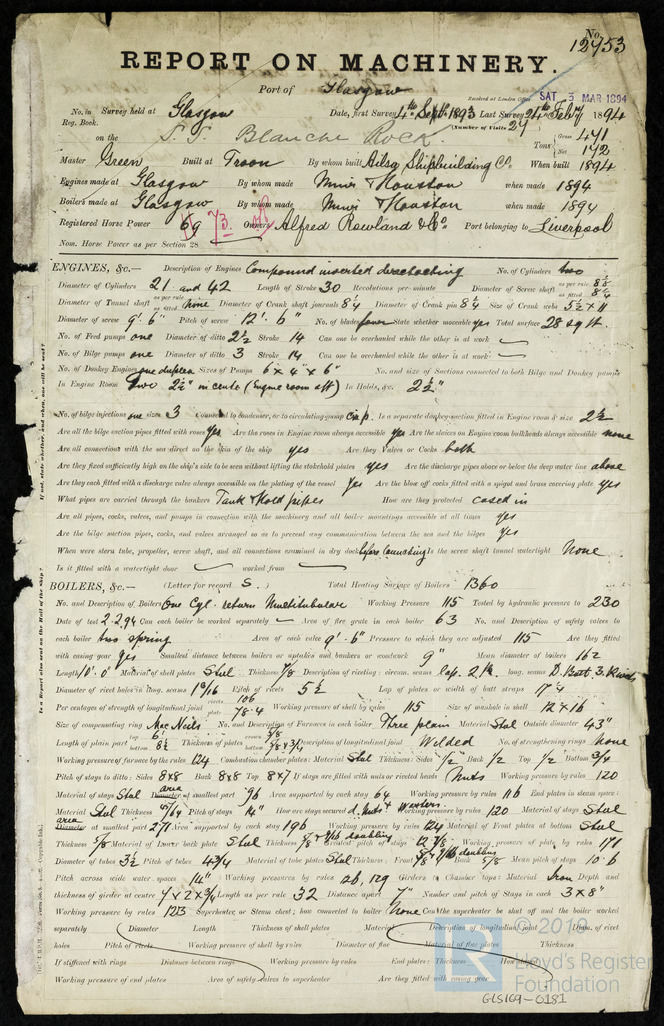 No. 12953
REPORT ON MACHINERY.
Port of Glasgow
Received at London Office SAT. 3 MAR 1894
No. in Reg. Book. Survey held at Glasgow Date, first Survey 4th Septr 1893 Last Survey 24th Feby 1894
(Number of Visits 27)
on the S.S. Blanche Rock Tons Gross 441 Net 142
Master Green Built at Troon By whom built Ailsa Shipbuilding Co. When built 1894
Engines made at Glasgow By whom made Muir & Houston when made 1894
Boilers made at Glasgow By whom made Muir & Houston when made 1894
Registered Horse Power 69 73 Owners Alfred Rowland & Co. Port belonging to Liverpool
Nom. Horse Power as per Section 28
ENGINES, &c.— Description of Engines Compound inverted direct acting No. of Cylinders two
Diameter of Cylinders 21 and 42 Length of Stroke 30 Revolutions per minute Diameter of Screw shaft as per rule 8 1/8 as fitted 8 1/4
Diameter of Tunnel shaft as per rule as fitted none Diameter of Crank shaft journals 8 1/4 Diameter of Crank pin 8 1/4 Size of Crank webs 5 1/2 x 11
Diameter of screw 9'. 6" Pitch of screw 12'. 6" No. of blades four State whether moveable yes Total surface 28 sq ft.
No. of Feed pumps one Diameter of ditto 2 1/2 Stroke 14 Can one be overhauled while the other is at work
No. of Bilge pumps one Diameter of ditto 3 Stroke 14 Can one be overhauled while the other is at work
No. of Donkey Engines one duplex Sizes of Pumps 6 x 4" x 6" No. and size of Suctions connected to both Bilge and Donkey pumps
In Engine Room Two 2 1/2" in centre (Engine room aft) In Holds, &c. 2 1/2"
No. of bilge injections one sizes 3 Connected to condenser, or to circulating pump Circ p. Is a separate donkey suction fitted in Engine room & size 2 1/2
Are all the bilge suction pipes fitted with roses yes Are the roses in Engine room always accessible yes Are the sluices on Engine room bulkheads always accessible none
Are all connections with the sea direct on the skin of the ship yes Are they Valves or Cocks both
Are they fixed sufficiently high on the ship's side to be seen without lifting the stokehold plates yes Are the discharge pipes above or below the deep water line above
Are they each fitted with a discharge valve always accessible on the plating of the vessel yes Are the blow off cocks fitted with a spigot and brass covering plate yes
What pipes are carried through the bunkers Tank & Hold pipes How are they protected cased in
Are all pipes, cocks, valves, and pumps in connection with the machinery and all boiler mountings accessible at all times yes
Are the bilge suction pipes, cocks, and valves arranged so as to prevent any communication between the sea and the bilges yes
When were stern tube, propeller, screw shaft, and all connections examined in dry dock before launching Is the screw shaft tunnel watertight None
Is it fitted with a watertight door worked from
BOILERS, &c.— (Letter for record S.) Total Heating Surface of Boilers 1360
No. and Description of Boilers One Cyl. return Multitubular Working Pressure 115 Tested by hydraulic pressure to 230
Date of test 2.2.94 Can each boiler be worked separately Area of fire grate in each boiler 63 No. and Description of safety valves to
each boiler two spring Area of each valve 9'. 6" Pressure to which they are adjusted 115 Are they fitted
with easing gear yes Smallest distance between boilers or uptakes and bunkers or woodwork 9" Mean diameter of boilers 162
Length 10'. 0" Material of shell plates Steel Thickness 7/8 Description of riveting: circum. seams lap. 2. R. long. seams D. Butt 3. Rivets
Diameter of rivet holes in long. seams 19/16 Pitch of rivets 5 1/2 Lap of plates or width of butt straps 17 1/4
Per centages of strength of longitudinal joint rivets 106 plate 78.4 Working pressure of shell by rules 115 Size of manhole in shell 12 x 16
Size of compensating ring Mac Neils No. and Description of Furnaces in each boiler Three plain Material Steel Outside diameter 43"
Length of plain part top 6' bottom 8 1/2 Thickness of plates crown bottom Description of longitudinal joint Welded No. of strengthening rings None
Working pressure of furnace by the rules 124 Combustion chamber plates: Material Steel Thickness: Sides 1/2 Back 1/2 Top 1/2 Bottom 3/4
Pitch of stays to ditto: Sides 8x8 Back 8x8 Top 8x7 If stays are fitted with nuts or riveted heads Nuts Working pressure by rules 120
Material of stays Steel area Diameter at smallest part 96 Area supported by each stay 64 Working pressure by rules 116 End plates in steam space:
Material Steel Thickness 45/64 Pitch of stays 14" How are stays secured d. Nuts & Washers. Working pressure by rules 120 Material of stays Steel
area Diameter at smallest part 271 Area supported by each stay 196 Working pressure by rules 124 Material of Front plates at bottom Steel
Thickness 5/8 Material of Lower back plate Steel Thickness doubling Greatest pitch of stays 12 7/8 Working pressure of plate by rules 171
Diameter of tubes 3 1/2 Pitch of tubes 4 3/4 Material of tube plates Steel Thickness: Front 7/8 doubling Back 5/8 Mean pitch of stays 10.6
Pitch across wide water spaces 14" Working pressures by rules 126, 129 Girders to Chamber tops: Material Iron Depth and
thickness of girder at centre 7 x 2 x 3/4 Length as per rule 32 Distance apart 7" Number and pitch of Stays in each 3 x 8"
Working pressure by rules 123 Superheater or Steam chest; how connected to boiler None Can the superheater be shut off and the boiler worked
separately Diameter Length Thickness of shell plates Material Description of longitudinal joint Diam. of rivet
holes Pitch of rivets Working pressure of shell by rules Diameter of flue Material of flue plates Thickness
If stiffened with rings Distance between rings Working pressure by rules End plates: Thickness How stayed
Working pressure of end plates Area of safety valves to superheater Are they fitted with easing gear
© 2019
Lloyd's Register
Foundation
GLS169-0181